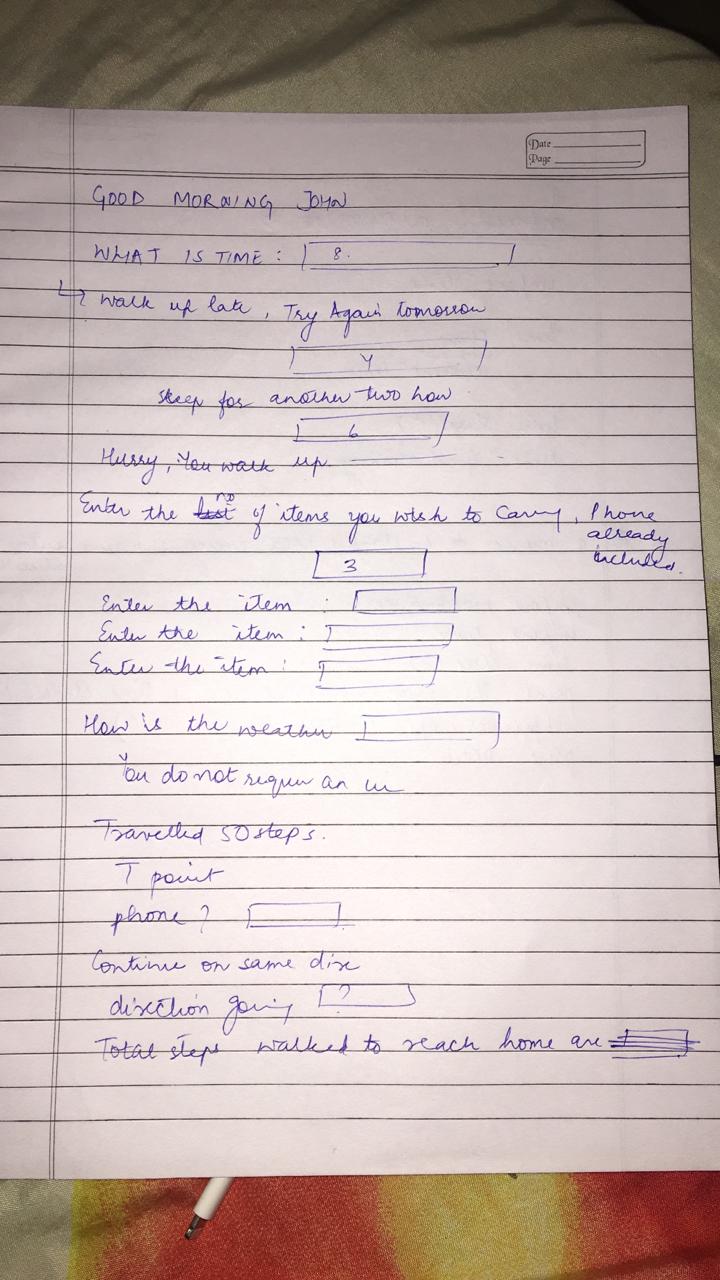 Date
Page
GOOD MORNING JOHN
WHAT IS TIME : 8.
↳ Walk up late, Try Again tomorrow
4
sleep for another two how
6
Hurry, You walk up.
Enter the no of items you wish to carry, Phone already included.
3
Enter the item :
Enter the item :
Enter the item :
How is the weather
You do not requir an u
Travelled 50 steps.
T point
phone ?
Continue on same dire
direction going ?
Total steps walked to reach home are